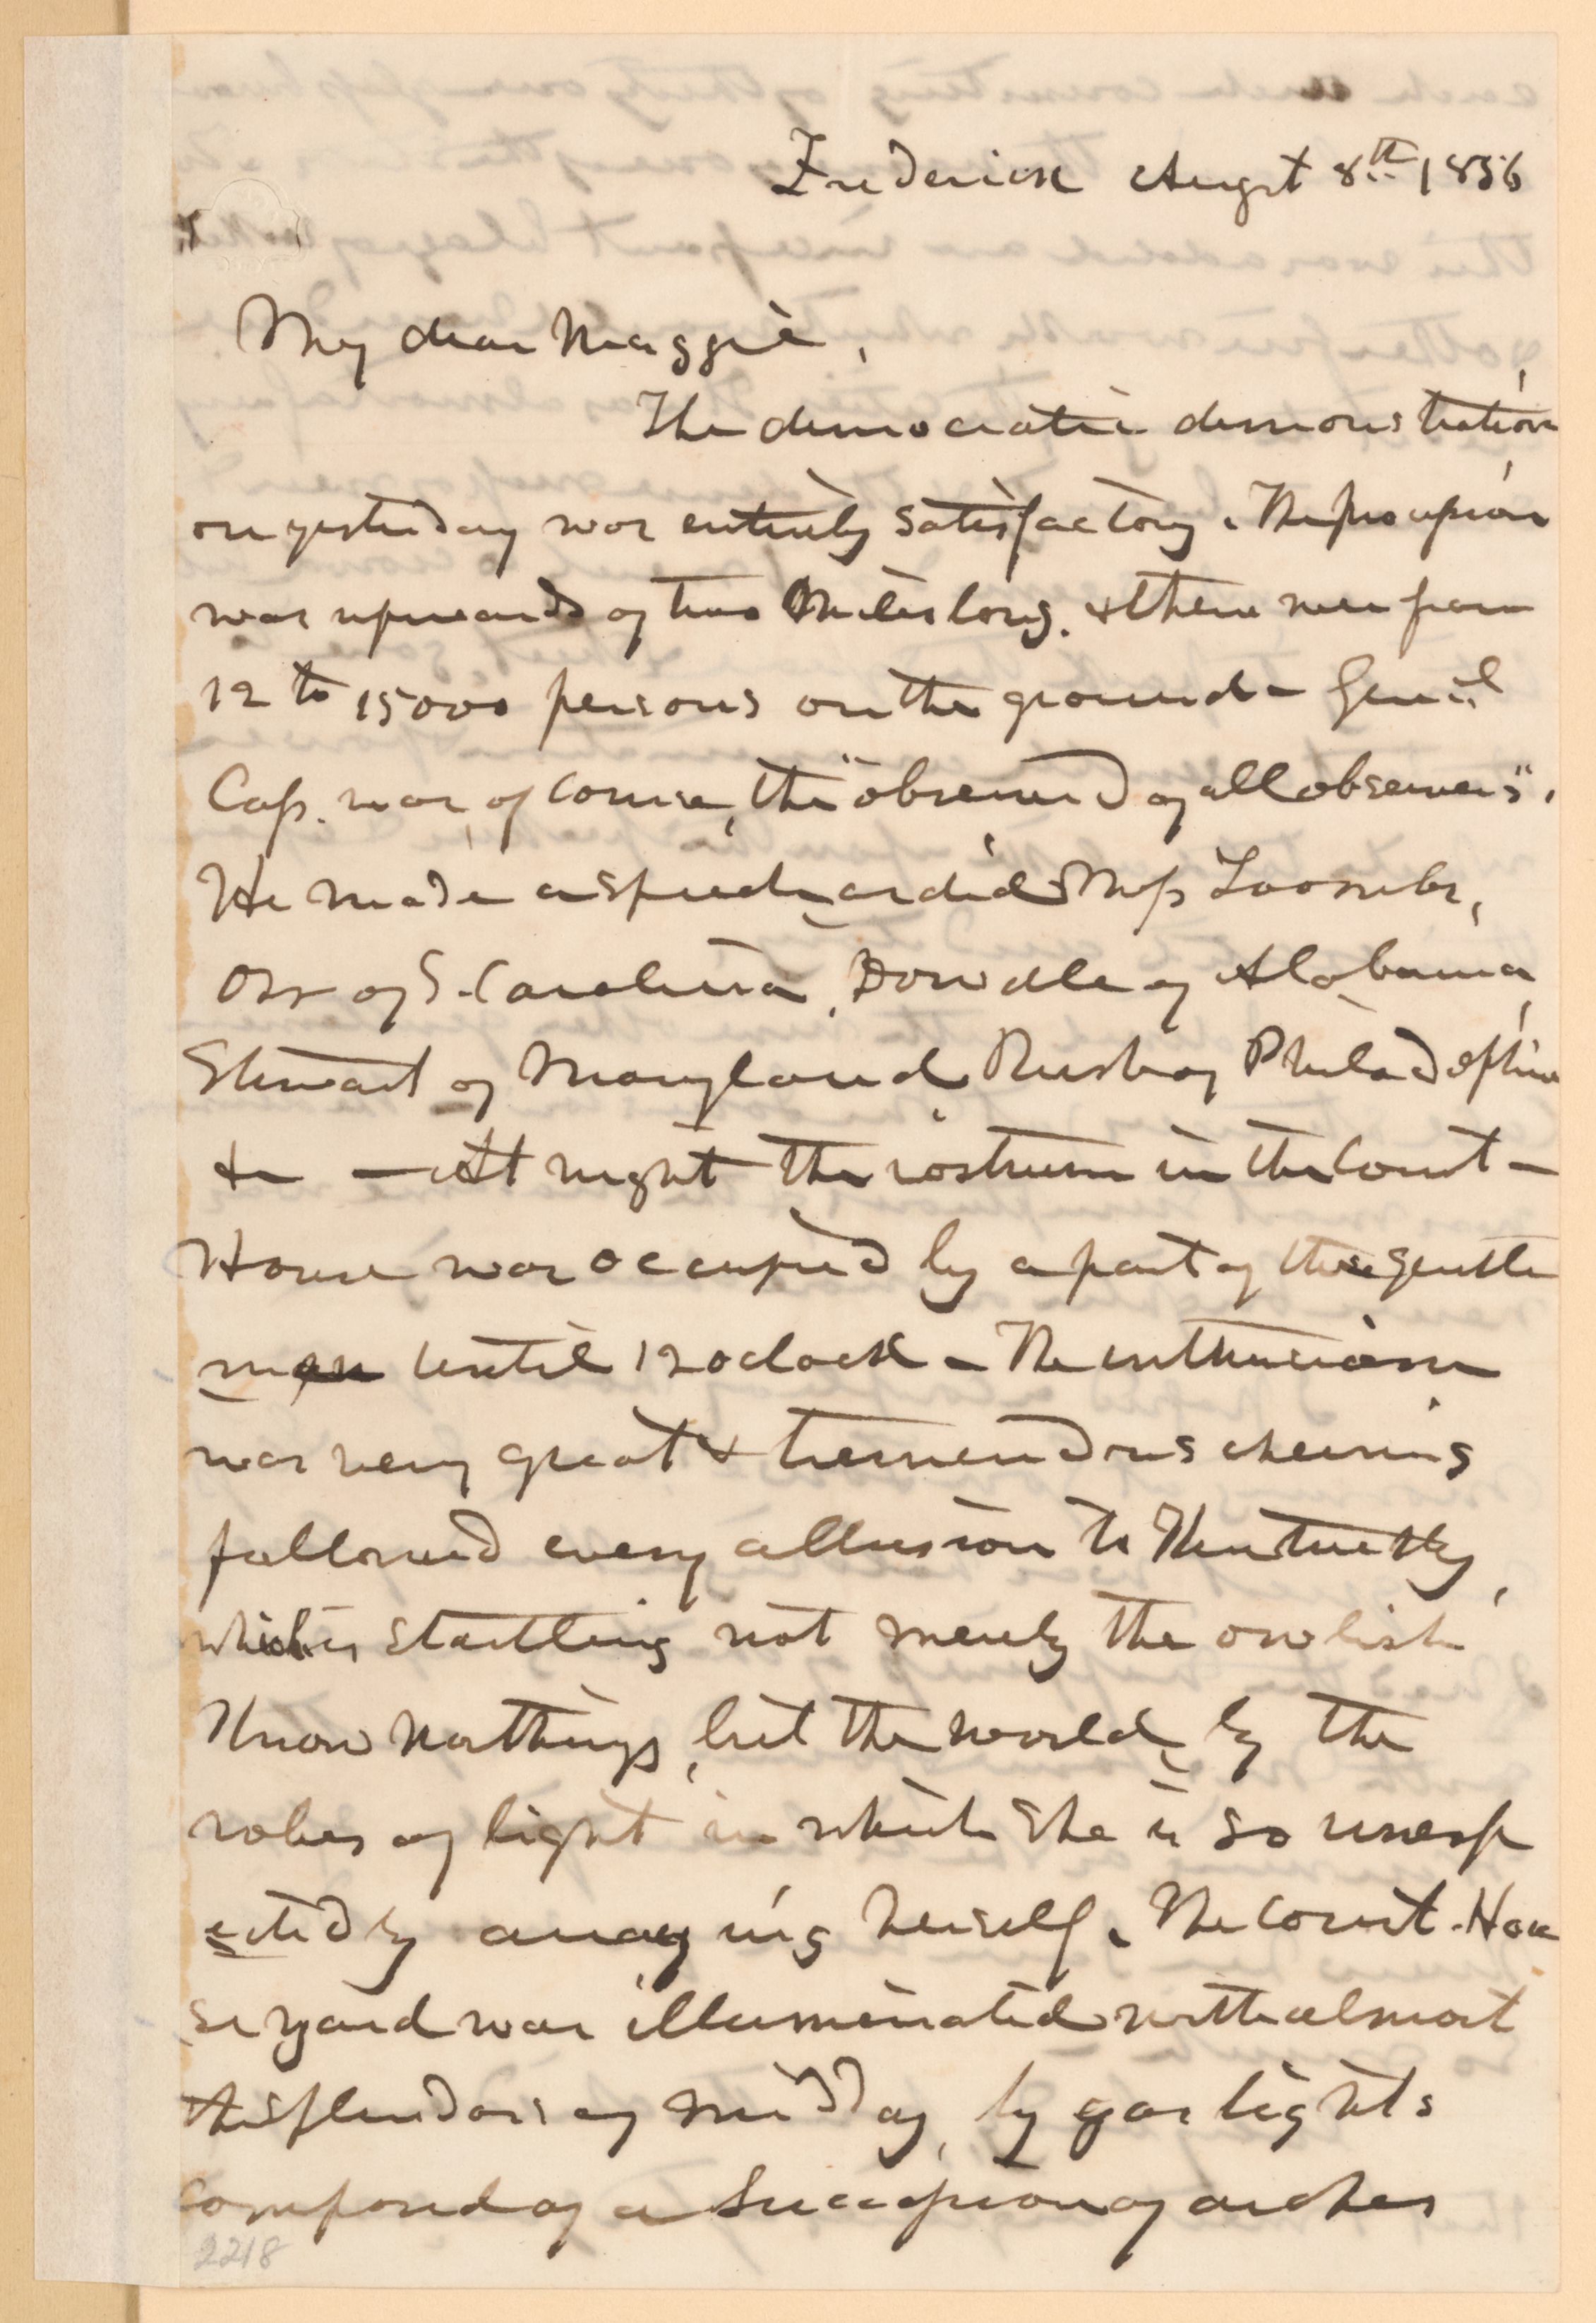 Frederick Augst 8th 1856
My dear Maggie,
The democratic demonstration
on yesterday was entirely satisfactory. The procession
was upwards of two Miles long. & there were from
12 to 15000 persons on the ground - Genl
Cass. was, of course, the "observed of all observers".
He made a speech, as did Mess Toombs,
Orr of S. Carolina, Dowdle of Alabama,
Stewart of Maryland, Rush of Philadelphia
&c — At night the rostrum in the Court-
House was occupied by a part of these gentle
men until 12 oclock - The enthusiasm
was very great & tremendous cheering
followed every allusion to Kentucky,
which is startling not merely the owlish
Know Nothings, but the world, by the
robes of light in which she is so unexp
ectedly arraying herself. The Court-Hou
se yard was illuminated with almost
the splendors of midday, by gas lights
composed of a succession of arches
2218